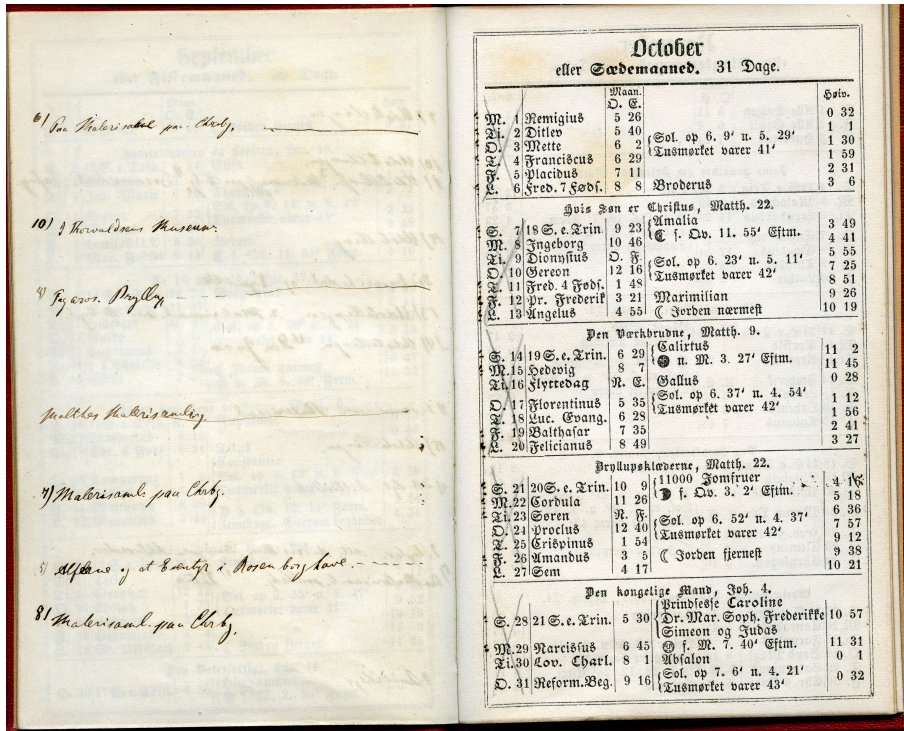 6) Paa Malerisaml paa Chrbg.
10) I Thorvaldsens Museum.
8) Figaros Bryllup
Malthes Malerisamling
7) Malerisaml. paa Chrbg.
5) og at Eventyr i Rosenborghave.
8) Malerisaml. paa Chrbg.
October
eller Sædemaaned. 31 Dage.
Maan. Høiv.
O. E.
M. 1 Remigius 5 26 0 32
Ti. 2 Ditlev 5 40 Sol. op 6. 9' n. 5. 29' 1 1
O. 3 Mette 6 2 Tusmørket varer 41' 1 30
T. 4 Franciscus 6 29 1 59
F. 5 Placidus 7 11 2 31
L. 6 Fred. 7 Føds. 8 8 Broderus 3 6
Hvis Søn er Christus, Matth. 22.
S. 7 18 S. e. Trin. 9 23 Amalia 3 49
M. 8 Ingeborg 10 46 ☾ f. Qv. 11. 55' Eftm. 4 41
Ti. 9 Dionysius O. F. 5 55
O. 10 Gereon 12 16 Sol. op 6. 23' n. 5. 11' 7 25
T. 11 Fred. 4 Føds. 1 48 Tusmørket varer 42' 8 51
F. 12 Pr. Frederik 3 21 Maximilian 9 26
L. 13 Angelus 4 55 ☾ Jorden nærmest 10 19
Den Værkbrudne, Matth. 9.
S. 14 19 S. e. Trin. 6 29 Calixtus 11 2
M. 15 Hedevig 8 7 n. M. 3. 27' Eftm. 11 45
Ti. 16 Flyttedag N. E. Gallus 0 28
O. 17 Florentinus 5 35 Sol. op 6. 37' n. 4. 54' 1 12
T. 18 Luc. Evang. 6 28 Tusmørket varer 42' 1 56
F. 19 Balthasar 7 35 2 41
L. 20 Felicianus 8 49 3 27
Bryllupsklæderne, Matth. 22.
S. 21 20 S. e. Trin. 10 9 11000 Jomfruer 4 16
M. 22 Cordula 11 26 f. Qv. 3. 2' Eftm. 5 18
Ti. 23 Søren N. F. 6 36
O. 24 Proclus 12 40 Sol. op 6. 52' n. 4. 37' 7 57
T. 25 Crispinus 1 54 Tusmørket varer 42' 9 12
F. 26 Amandus 3 5 ☾ Jorden fjernest 9 38
L. 27 Sem 4 17 10 21
Den kongelige Mand, Joh. 4.
Prindsesse Caroline
S. 28 21 S. e. Trin. 5 30 Dr. Mar. Soph. Frederikke 10 57
Simeon og Judas
M. 29 Narcissus 6 45 f. M. 7. 40' Eftm. 11 31
Ti. 30 Lov. Charl. 8 1 Absalon 0 1
O. 31 Reform. Beg. 9 16 Sol. op 7. 6' n. 4. 21' 0 32
Tusmørket varer 43'